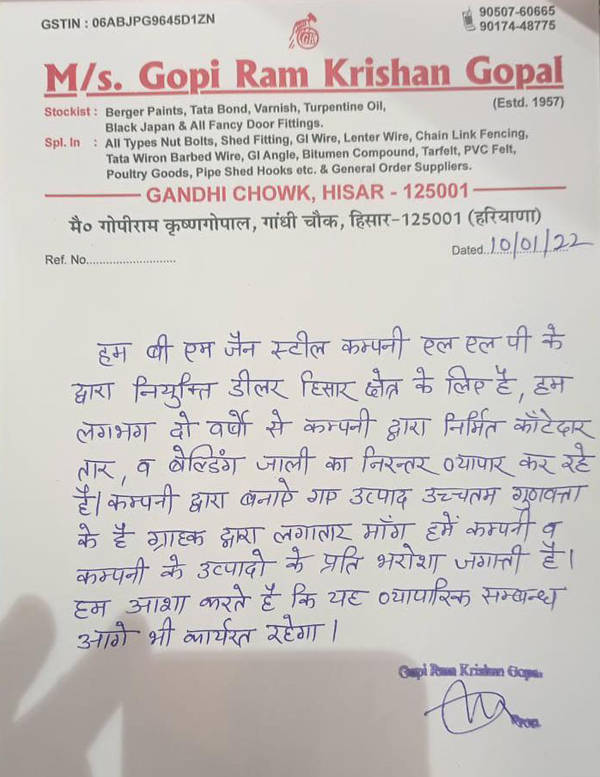 GSTIN : 06ABJPG9645D1ZN
90507-60665
90174-48775
M/s. Gopi Ram Krishan Gopal
(Estd. 1957)
Stockist : Berger Paints, Tata Bond, Varnish, Turpentine Oil,
Black Japan & All Fancy Door Fittings.
Spl. In : All Types Nut Bolts, Shed Fitting, GI Wire, Lenter Wire, Chain Link Fencing,
Tata Wiron Barbed Wire, GI Angle, Bitumen Compound, Tarfelt, PVC Felt,
Poultry Goods, Pipe Shed Hooks etc. & General Order Suppliers.
GANDHI CHOWK, HISAR - 125001
मै० गोपीराम कृष्णगोपाल, गांधी चौक, हिसार-125001 (हरियाणा)
Ref. No..........................
Dated..10/01/22
हम बी एम जैन स्टील कम्पनी एल एल पी के
द्वारा नियुक्ति डीलर हिसार क्षेत्र के लिए है, हम
लगभग दो वर्षो से कम्पनी द्वारा निर्मित काँटेदार
तार, व वेल्डिंग जाली का निरन्तर व्यापार कर रहे
है। कम्पनी द्वारा बनाऐ गए उत्पाद उच्चतम गुणवत्ता
के है ग्राहक द्वारा लगातार माँग हमें कम्पनी व
कम्पनी के उत्पादो के प्रति भरोशा जगाती है।
हम आशा करते है कि यह व्यापारिक सम्बन्ध
आगे भी कार्यरत रहेगा।
Gopi Ram Krishan Gopal